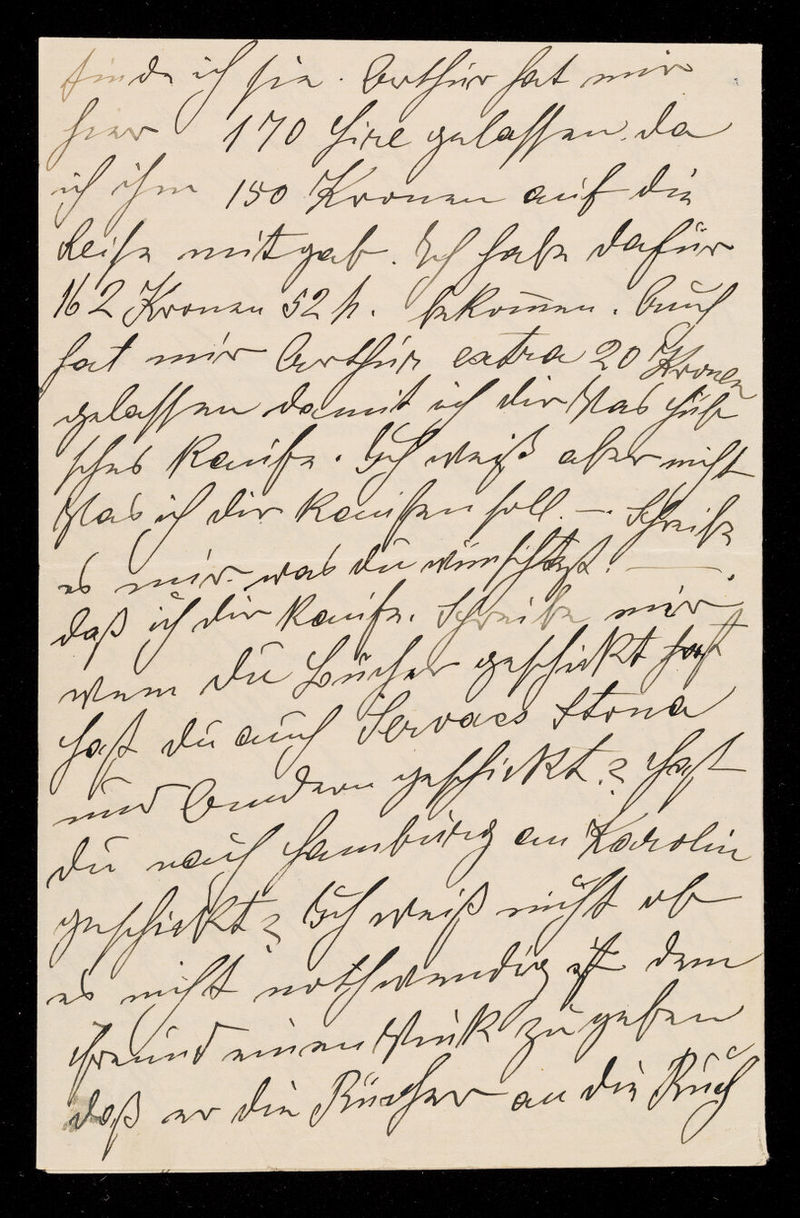 finde ich sie. Arthur hat mir
hier 170 Lire gelassen da
ich ihm 150 Kronen auf die
Reise mitgab. Ich habe dafür
162 Kronen 52 h. bekom̅en. Auch
hat mir Arthur extra 20 Kronen
gelassen damit ich dir Was hüb
sches kaufe. Ich weiß aber nicht
Was ich dir kaufen soll. — Schreibe
es mir was du wünschtest. —.
daß ich dir kaufe. Schreibe mir
wem du Bücher geschickt hast
hast du auch Servaes Stona
und Andern geschickt? Hast
du nach Hamburg an Karolin
geschickt? Ich weiß nicht ob
es nicht nothwendig ist dem
Freund einen Wink zu geben
daß er die Bücher an die Buch